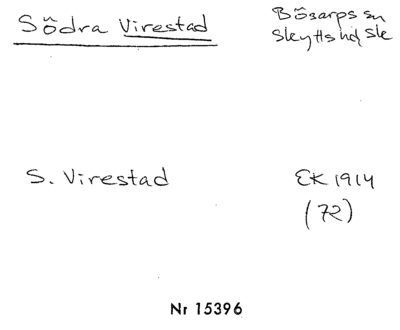 Södra Virestad
Bösarps sn
Skytts hd Sk
S. Virestad
EK 1914
(72)
Nr 15396